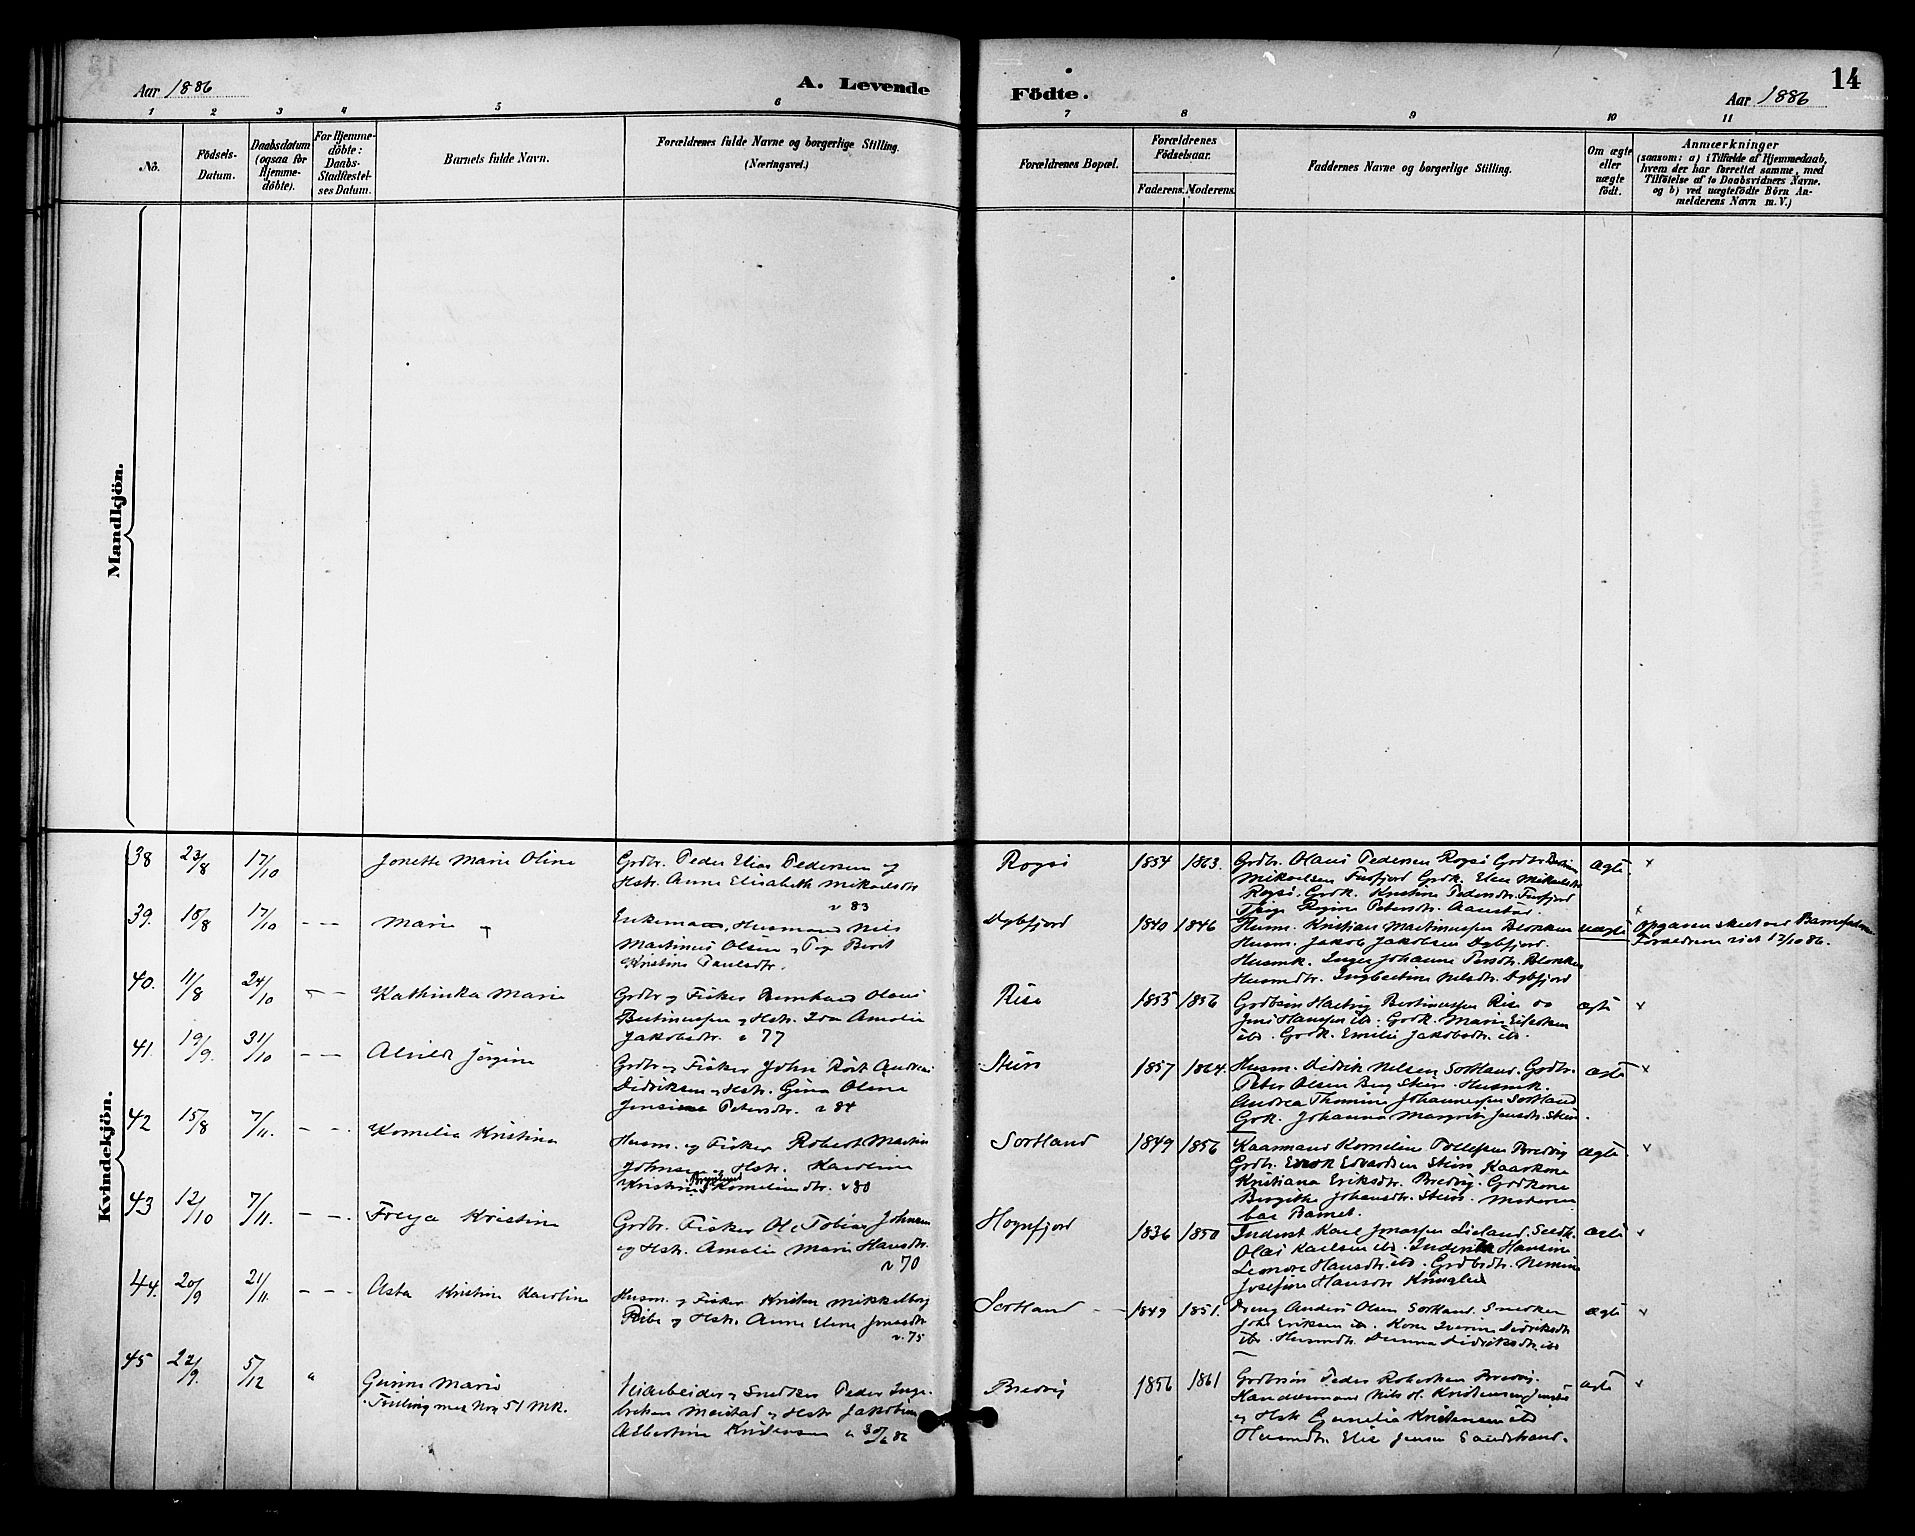 Aar 1886
A. Levende
Födte.
Aar 1886
14
1 2 3 4 5 6 7 8 9 10 11
Nô.
Födsels-
Datum.
Daabsdatum
(ogsaa for
Hjemme-
döbte).
For Hjemme-
döbte:
Daabs-
Stadfæstel-
ses Datum.
Barnets fulde Navn.
Forældrenes fulde Navne og borgerlige Stilling.
(Næringsvei.)
Forældrenes Bopæl.
Forældrenes
Födselsaar.
Faderens. Moderens.
Faddernes Navne og borgerlige Stilling.
Om ægte
eller
uægte
födt.
Anmærkninger
(saasom: a) i Tilfælde af Hjemmedaab,
hvem der har forrettet samme, med
Tilföielse af to Daabsvidners Navne.
og b) ved uægtefödte Börn An-
melderens Navn m. V.)
Mandkjön.
Kvindekjön.
38 23/8 17/10 Jonette Marie Oline
Grdbr. Peder Elias Pedersen og
Hstr. Anne Elisabeth Mikaelsdtr
v 83
Rogsö 1854 1863.
Grdbr. Olaus Pedersen Rogsö Grdbr
Mikaelsen Fusfjord Grdk. Elen Mikaelsdtr
Rogsö. Grdk. Kristine Pedersdtr. Fusfjord
Pige Regine Petersdtr. Aanstad.
Ægte
39. 18/8 17/10 - - - Marie
Enkemand, Husmand Nils
Martinus Olsen og Pige Berit
Kristine Paulsdtr.
Dybfjord 1840 1846
Husm. Kristian Martinussen Blokken
Husm. Jakob Jakobsen Dybfjord.
Husmk. Inger Johanne Persdtr. Blokken
Husmdtr. Ingbertine Nelsdtr. Dybfjord
uægte
Opgaven skeet ved Barnefaderen
17/10 86.
40. 11/8 24/10 - - Kathinka Marie
Grdbr og Fisker Bernhard Olaus
Bertinussen og Hstr. Ida Amalie
Jakobsdtr. v 77
Rise 1855 1856
Grdbsön Hartvig Bertinussen Rise og
Jens Hansen ibd. Grdk. Marie
ibd. Grdk. Emilie Jakobsdtr. ibd.
ægte
41. 19/9. 31/10 - - Alvilde Jörgine
Grdbr og Fisker John Röst Andreas
Didriksen og Hstr. Gina Oline
Jensine Petersdtr. v 84
Steiro 1857 1864.
Husm. Didrik Nelsen Sortland. Grdbr.
Peter Olsen Berg Steiro. Husmk.
Andrea Thomine Johannessen Sortland
Grdk. Johanna Margrit Jensdtr. Steiro
ægte
42 15/8 7/11. - - Kornelia Kristine
Husm. og Fisker Robert Martin
Johnsen og Hstr. Karoline
Kristine Korneliusdtr. v 80
Sortland 1849 1856
Kaarmand Kornelius Tollefsen Bredvig
Grdbr. Erik Edvardsen Steiro Kaarkone
Kristiana Eriksdtr. Bredvig. Grdkone
Birgithe Johansdtr. Steiro. Moderen
bar Barnet.
Ægte
43 12/10 7/11. - - Freya Kristine
Grdbr. Fisker Ole Tobias Johnsen
og Hstr. Amalie Marie Hansdtr.
v 70
Hognfjord 1836 1850
Inderst Karl Jonassen Liland, Seldk.
Olai Karlsen ibd. Hansine
Lenore Hansdtr. ibd. Grdbdtr. Nemine
Josefine Hansdtr Kringlen
ægte
44. 20/9 21/11. - - - Asta Kristine Karoline
Husm. og Fisker Kristen Mikkelborg
Ribe og Hstr. Anne Elene Jonasdtr
v. 75
Sortland - - 1849 1851.
Dreng Anders Olsen Sortland. Snedker
Johs Eriksen ib. Kone Iverine Didriksdtr
ibd. Husmdtr. Didriksdtr. ibd
ægte
45 22/9. 5/12 " Gunne Marie
Tvilling med No 51 MK.
Veiarbeider og Snedker Peder Inge-
brektsen Meistad og Hstr Jakobine
Albertine Kristensen v 30/6 86
Bredvig 1856 1861
Grdbrsön Peder Robertsen Bredvig.
Handelsmand Nils H. Kristensen
og Hstr Cornelia Kristensen ibd
Husmdtr. Elise Jensen Sandstrand.
ægte